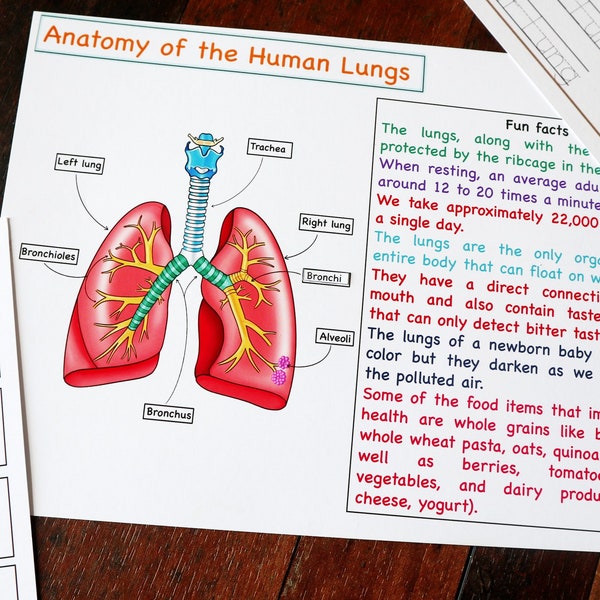 Anatomy of the Human Lungs
Trachea
Left lung
Right lung
Bronchioles
Bronchi
Alveoli
Bronchus
Fun facts
The lungs, along with the
protected by the ribcage in the
When resting, an average adu
around 12 to 20 times a minute
We take approximately 22,000
a single day.
The lungs are the only orga
entire body that can float on w
They have a direct connecti
mouth and also contain taste
that can only detect bitter tast
The lungs of a newborn baby
color but they darken as we
the polluted air.
Some of the food items that im
health are whole grains like b
whole wheat pasta, oats, quinoa
well as berries, tomatoe
vegetables, and dairy produ
cheese, yogurt).